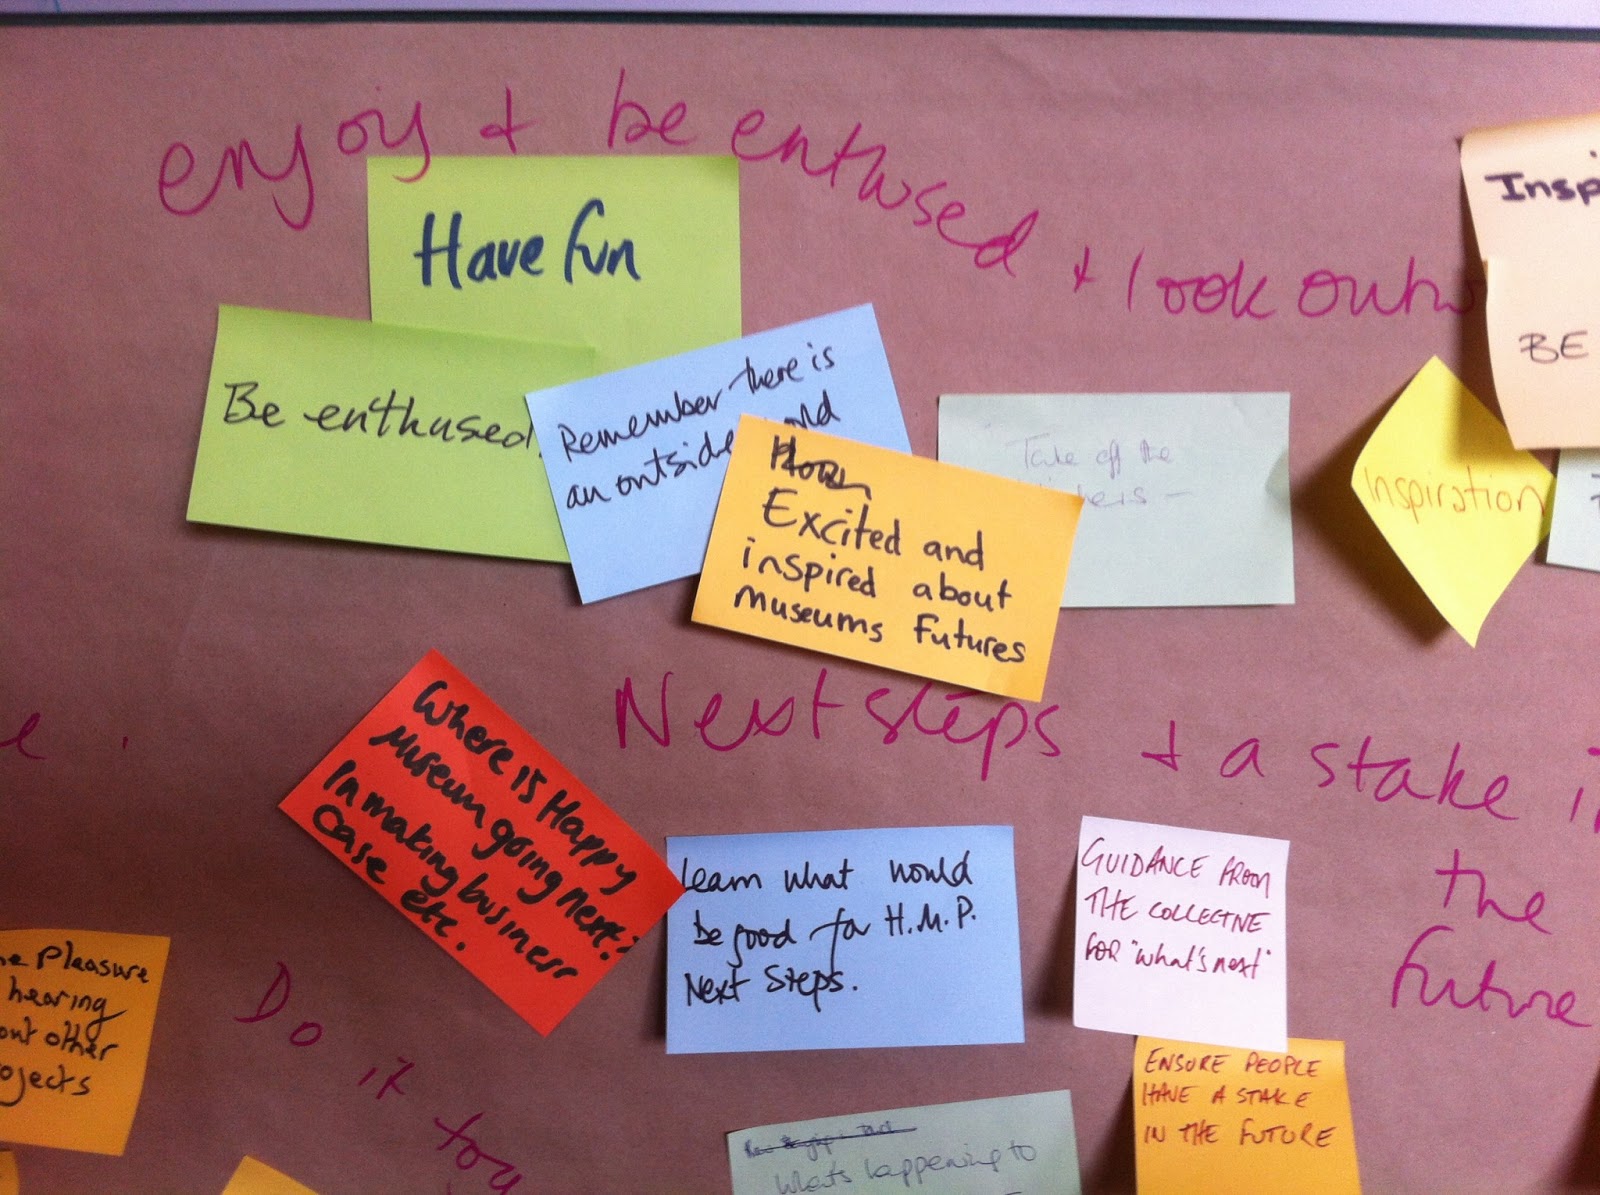 enjoy + be enthused + look outw
Have fun
Be enthused!
Remember there is
an outside
Excited and
inspired about
museums futures
Take off the
Inspiration
Insp
BE
Next steps + a stake in
the
future
Where is Happy
Museum going next?
In making business
case etc.
Learn what would
be good for H.M.P.
Next Steps.
GUIDANCE FROM
THE COLLECTIVE
FOR "what's next"
ENSURE PEOPLE
HAVE A STAKE
IN THE FUTURE
e Pleasure
hearing
out other
ojects
Do it
What's happening to